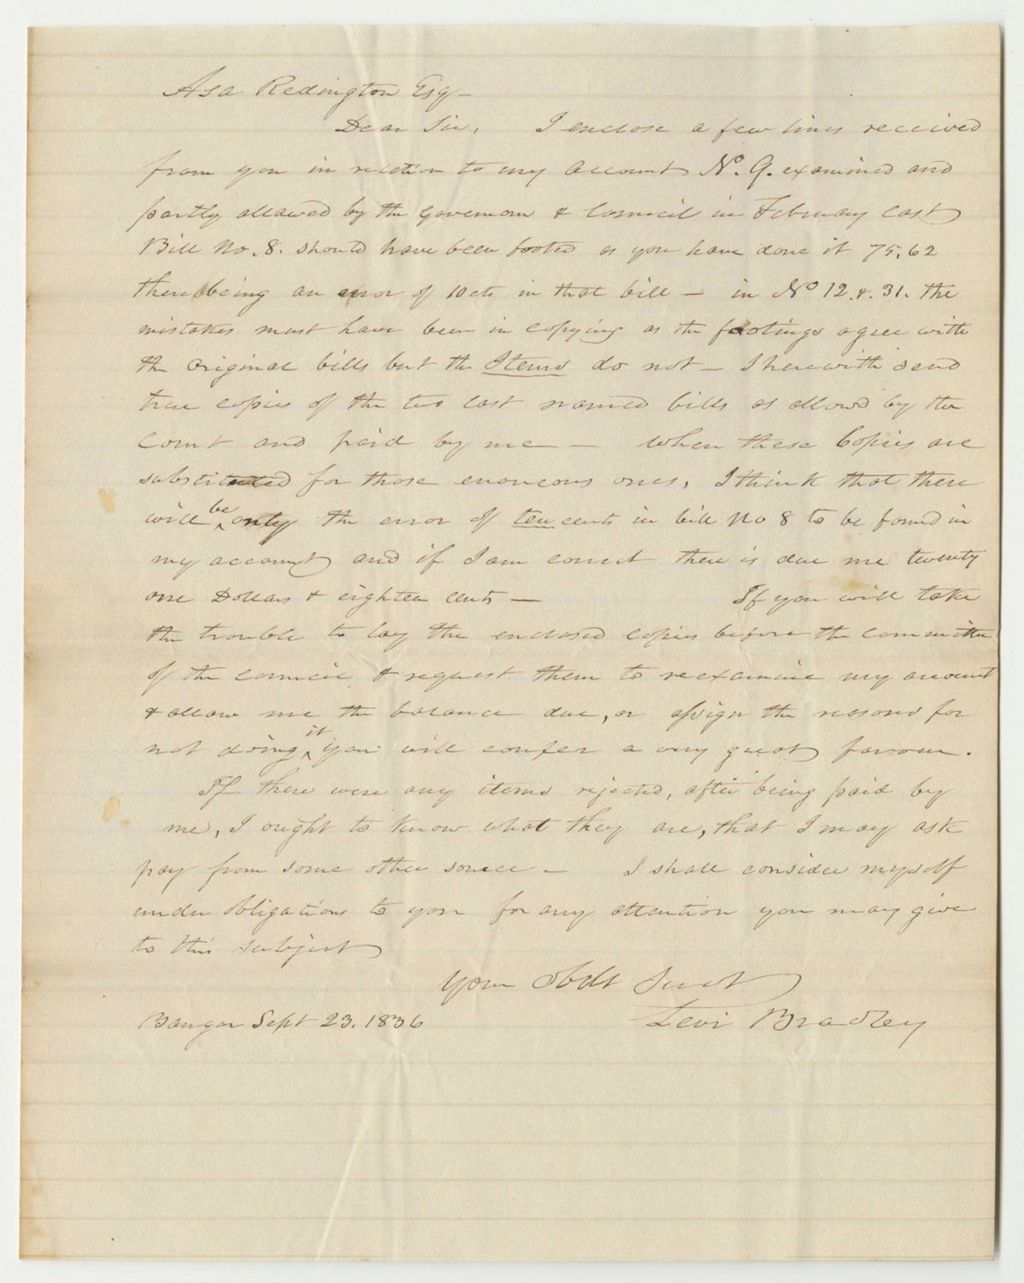 Asa Redington Esq—
Dear Sir, I enclose a few lines received
from you in relation to my account No. 9. examined and
partly allowed by the Governour & Council in February last
Bill No. 8. should have been footed as you have done it 75.62
there being an error of 10 cts in that bill — in No 12. & 31. the
mistakes must have been in copying as the footings agree with
the original bills but the Items do not — I herewith send
true copies of the two last named bills as allowd by the
Court and paid by me — when these Copies are
substituted for those erroneous ones, I think that there
will be only the error of ten cents in bill No 8 to be found in
my account and if I am correct there is due me twenty
one Dollars & eighteen cents — If you will take
the trouble to lay the enclosed copies before the committee
of the council & request them to reexamine my account
& allow me the balance due, or assign the reasons for
not doing it you will confer a very great favour.
If there were any items rejected, after being paid by
me, I ought to know what they are, that I may ask
pay from some other source — I shall consider myself
under obligations to you for any attention you may give
to this subject
Your Obdt Servt
Bangor Sept 23. 1836 Levi Bradley